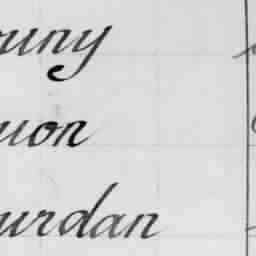 uny
uon
urdan